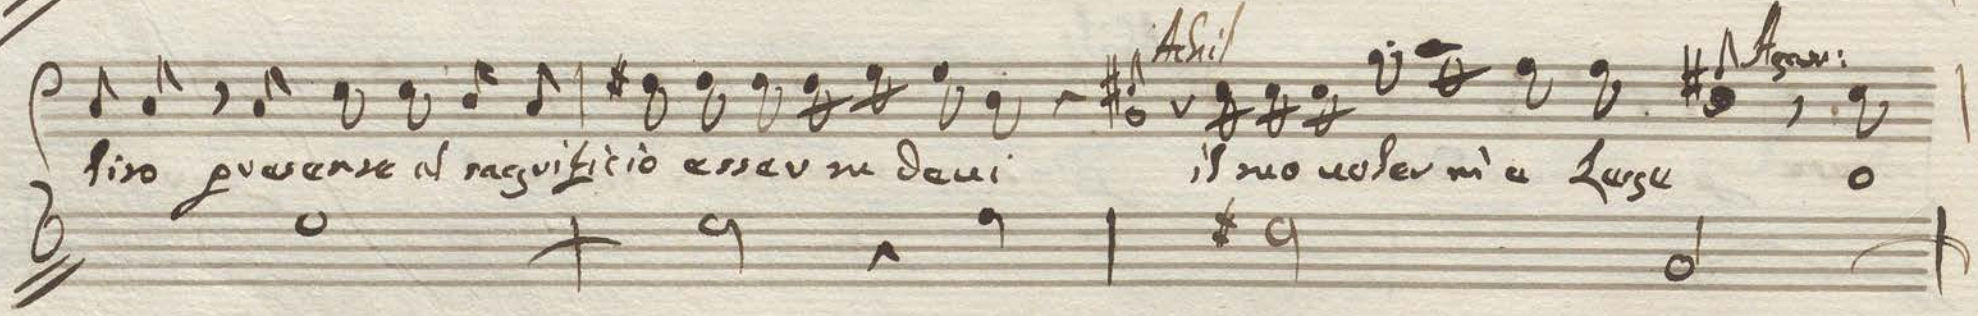 Achil Agam:
tiro presente al sacrifitio esser tu devi il tuo voler m'è Legge o